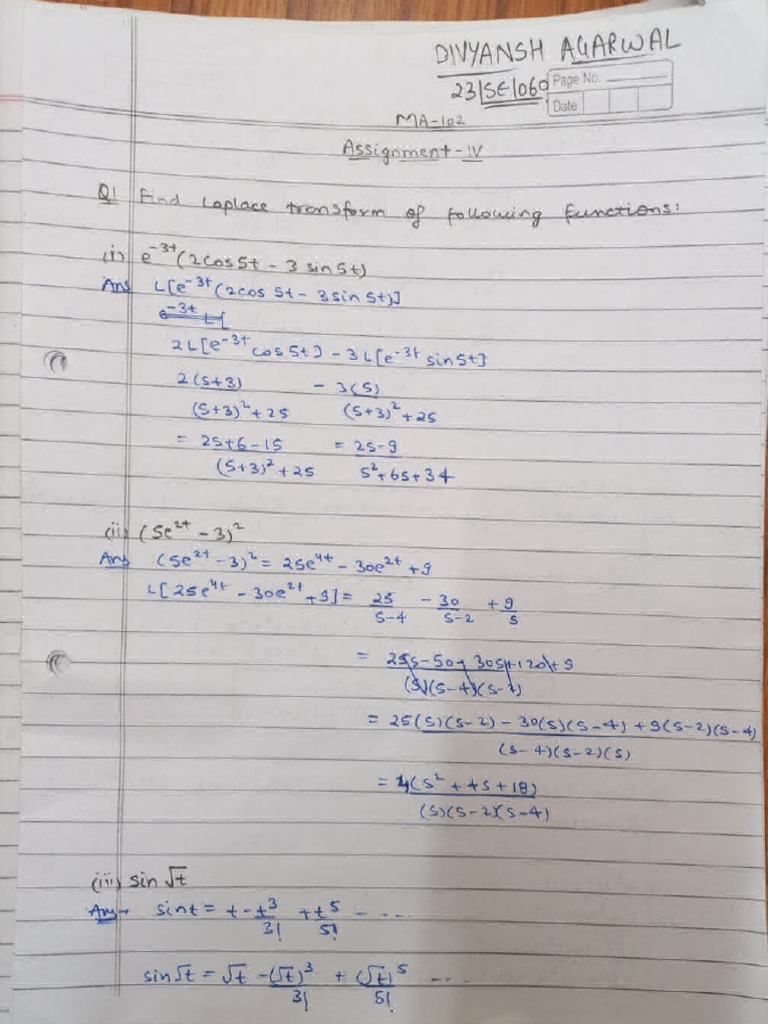 DIVYANSH AGARWAL
23/SE/060
Page No.
Date
MA-102
Assignment-IV
Q1 Find Laplace transform of following functions:
(i) e^-3t (2cos5t - 3 sin5t)
Ans L[e^-3t (2cos 5t - 3sin 5t)]
e^-3t L[
2L[e^-3t cos5t] - 3L[e^-3t sin5t]
2(s+3) - 3(5)
(s+3)² + 25 (s+3)² + 25
= 2s+6-15 = 2s-9
(s+3)² + 25 s² + 6s + 34
(ii) (5e^2t - 3)²
Ans (5e^2t - 3)² = 25e^4t - 30e^2t + 9
L[25e^4t - 30e^2t + 9] = 25 - 30 + 9
s-4 s-2 s
= 25s-50-30s+120+9
(s)(s-4)(s-2)
= 25(s)(s-2) - 30(s)(s-4) + 9(s-2)(s-4)
(s-4)(s-2)(s)
= 4(s² + 4s + 18)
(s)(s-2)(s-4)
(iii) sin √t
Ans→ sint = t - t³ + t⁵ - ....
3! 5!
sin√t = √t - (√t)³ + (√t)⁵ ....
3! 5!